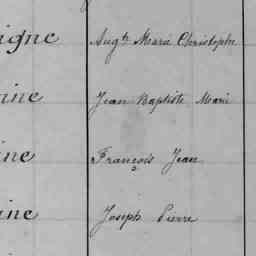 igne Aug.te Marie Christophe
ine Jean Baptiste Marie
ine François Jean
ine Joseph Pierre